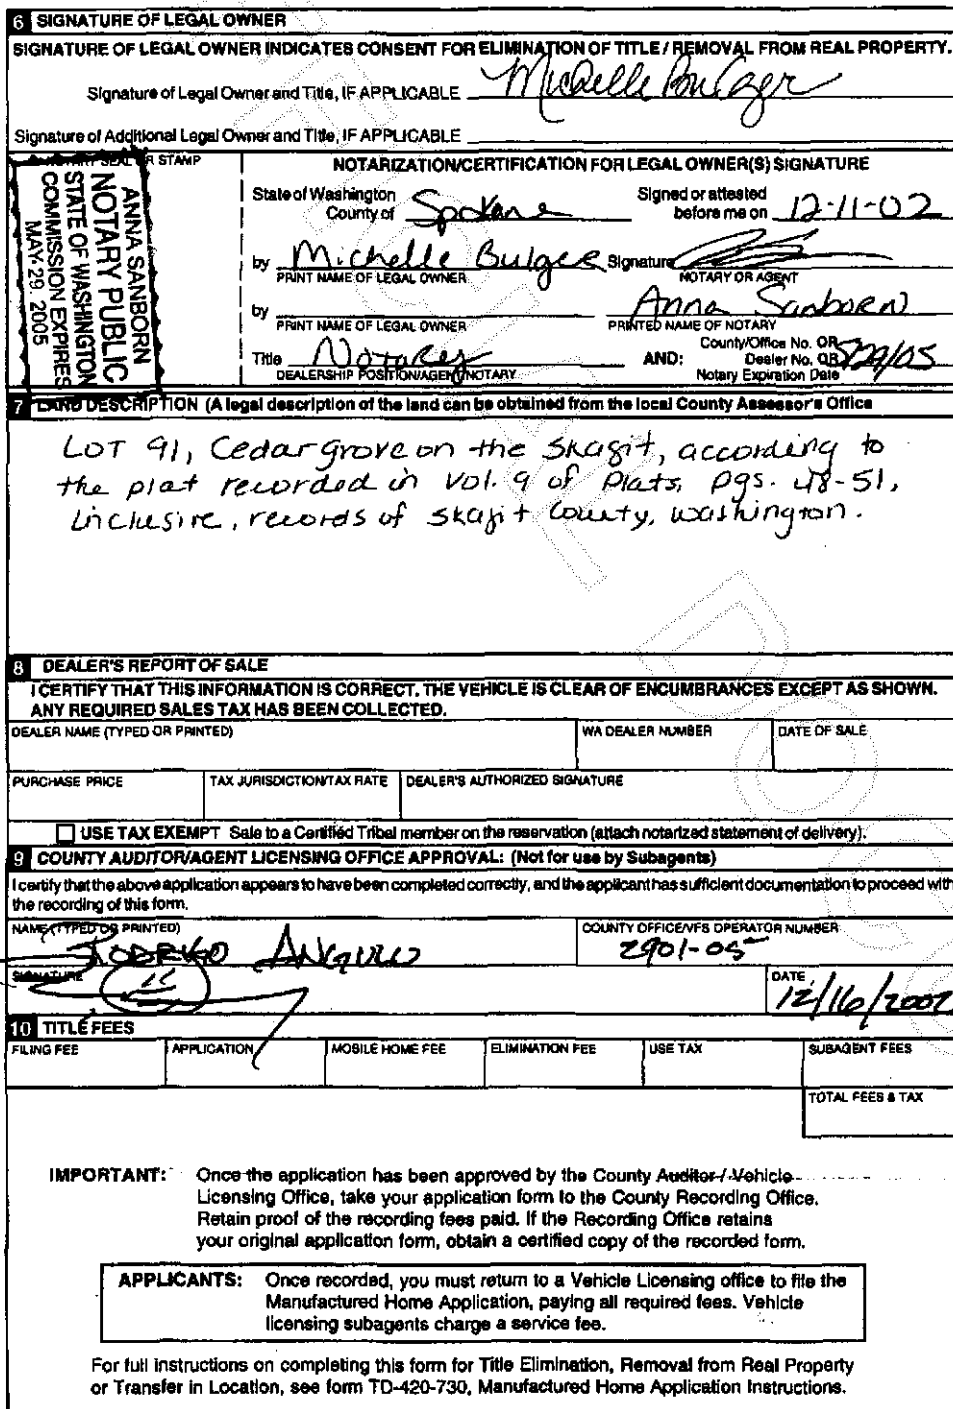 6 SIGNATURE OF LEGAL OWNER
SIGNATURE OF LEGAL OWNER INDICATES CONSENT FOR ELIMINATION OF TITLE / REMOVAL FROM REAL PROPERTY.
Signature of Legal Owner and Title, IF APPLICABLE Michelle Bulger
Signature of Additional Legal Owner and Title, IF APPLICABLE
NOTARY SEAL OR STAMP
ANNA SANBORN
NOTARY PUBLIC
STATE OF WASHINGTON
COMMISSION EXPIRES
MAY 29, 2005
NOTARIZATION/CERTIFICATION FOR LEGAL OWNER(S) SIGNATURE
State of Washington
County of Spokane
Signed or attested
before me on 12-11-02
by Michelle Bulger Signature
PRINT NAME OF LEGAL OWNER
NOTARY OR AGENT
by
PRINT NAME OF LEGAL OWNER
Anna Sanborn
PRINTED NAME OF NOTARY
Title Notary
DEALERSHIP POSITION/AGENT/NOTARY
AND:
County/Office No. OR
Dealer No. OR
Notary Expiration Date
5/29/05
7 LAND DESCRIPTION (A legal description of the land can be obtained from the local County Assessor's Office
LOT 91, Cedargrove on the Skagit, according to
the plat recorded in Vol. 9 of Plats, pgs. 48-51,
inclusive, records of Skagit County, Washington.
8 DEALER'S REPORT OF SALE
I CERTIFY THAT THIS INFORMATION IS CORRECT. THE VEHICLE IS CLEAR OF ENCUMBRANCES EXCEPT AS SHOWN.
ANY REQUIRED SALES TAX HAS BEEN COLLECTED.
DEALER NAME (TYPED OR PRINTED)
WA DEALER NUMBER
DATE OF SALE
PURCHASE PRICE
TAX JURISDICTION/TAX RATE
DEALER'S AUTHORIZED SIGNATURE
USE TAX EXEMPT Sale to a Certified Tribal member on the reservation (attach notarized statement of delivery).
9 COUNTY AUDITOR/AGENT LICENSING OFFICE APPROVAL: (Not for use by Subagents)
I certify that the above application appears to have been completed correctly, and the applicant has sufficient documentation to proceed with
the recording of this form.
NAME (TYPED OR PRINTED)
COUNTY OFFICE/VFS OPERATOR NUMBER
Rodrigo Angulo
2901-05
SIGNATURE
DATE
12/16/2002
10 TITLE FEES
FILING FEE
APPLICATION
MOBILE HOME FEE
ELIMINATION FEE
USE TAX
SUBAGENT FEES
TOTAL FEES & TAX
IMPORTANT: Once the application has been approved by the County Auditor / Vehicle
Licensing Office, take your application form to the County Recording Office.
Retain proof of the recording fees paid. If the Recording Office retains
your original application form, obtain a certified copy of the recorded form.
APPLICANTS: Once recorded, you must return to a Vehicle Licensing office to file the
Manufactured Home Application, paying all required fees. Vehicle
licensing subagents charge a service fee.
For full instructions on completing this form for Title Elimination, Removal from Real Property
or Transfer in Location, see form TD-420-730, Manufactured Home Application Instructions.